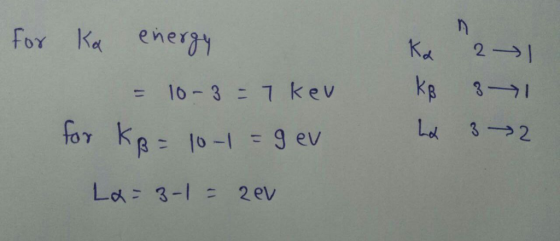 For Kα energy
= 10 - 3 = 7 keV
for Kβ = 10 - 1 = 9 eV
Lα = 3 - 1 = 2 eV
n
Kα 2 → 1
Kβ 3 → 1
Lα 3 → 2